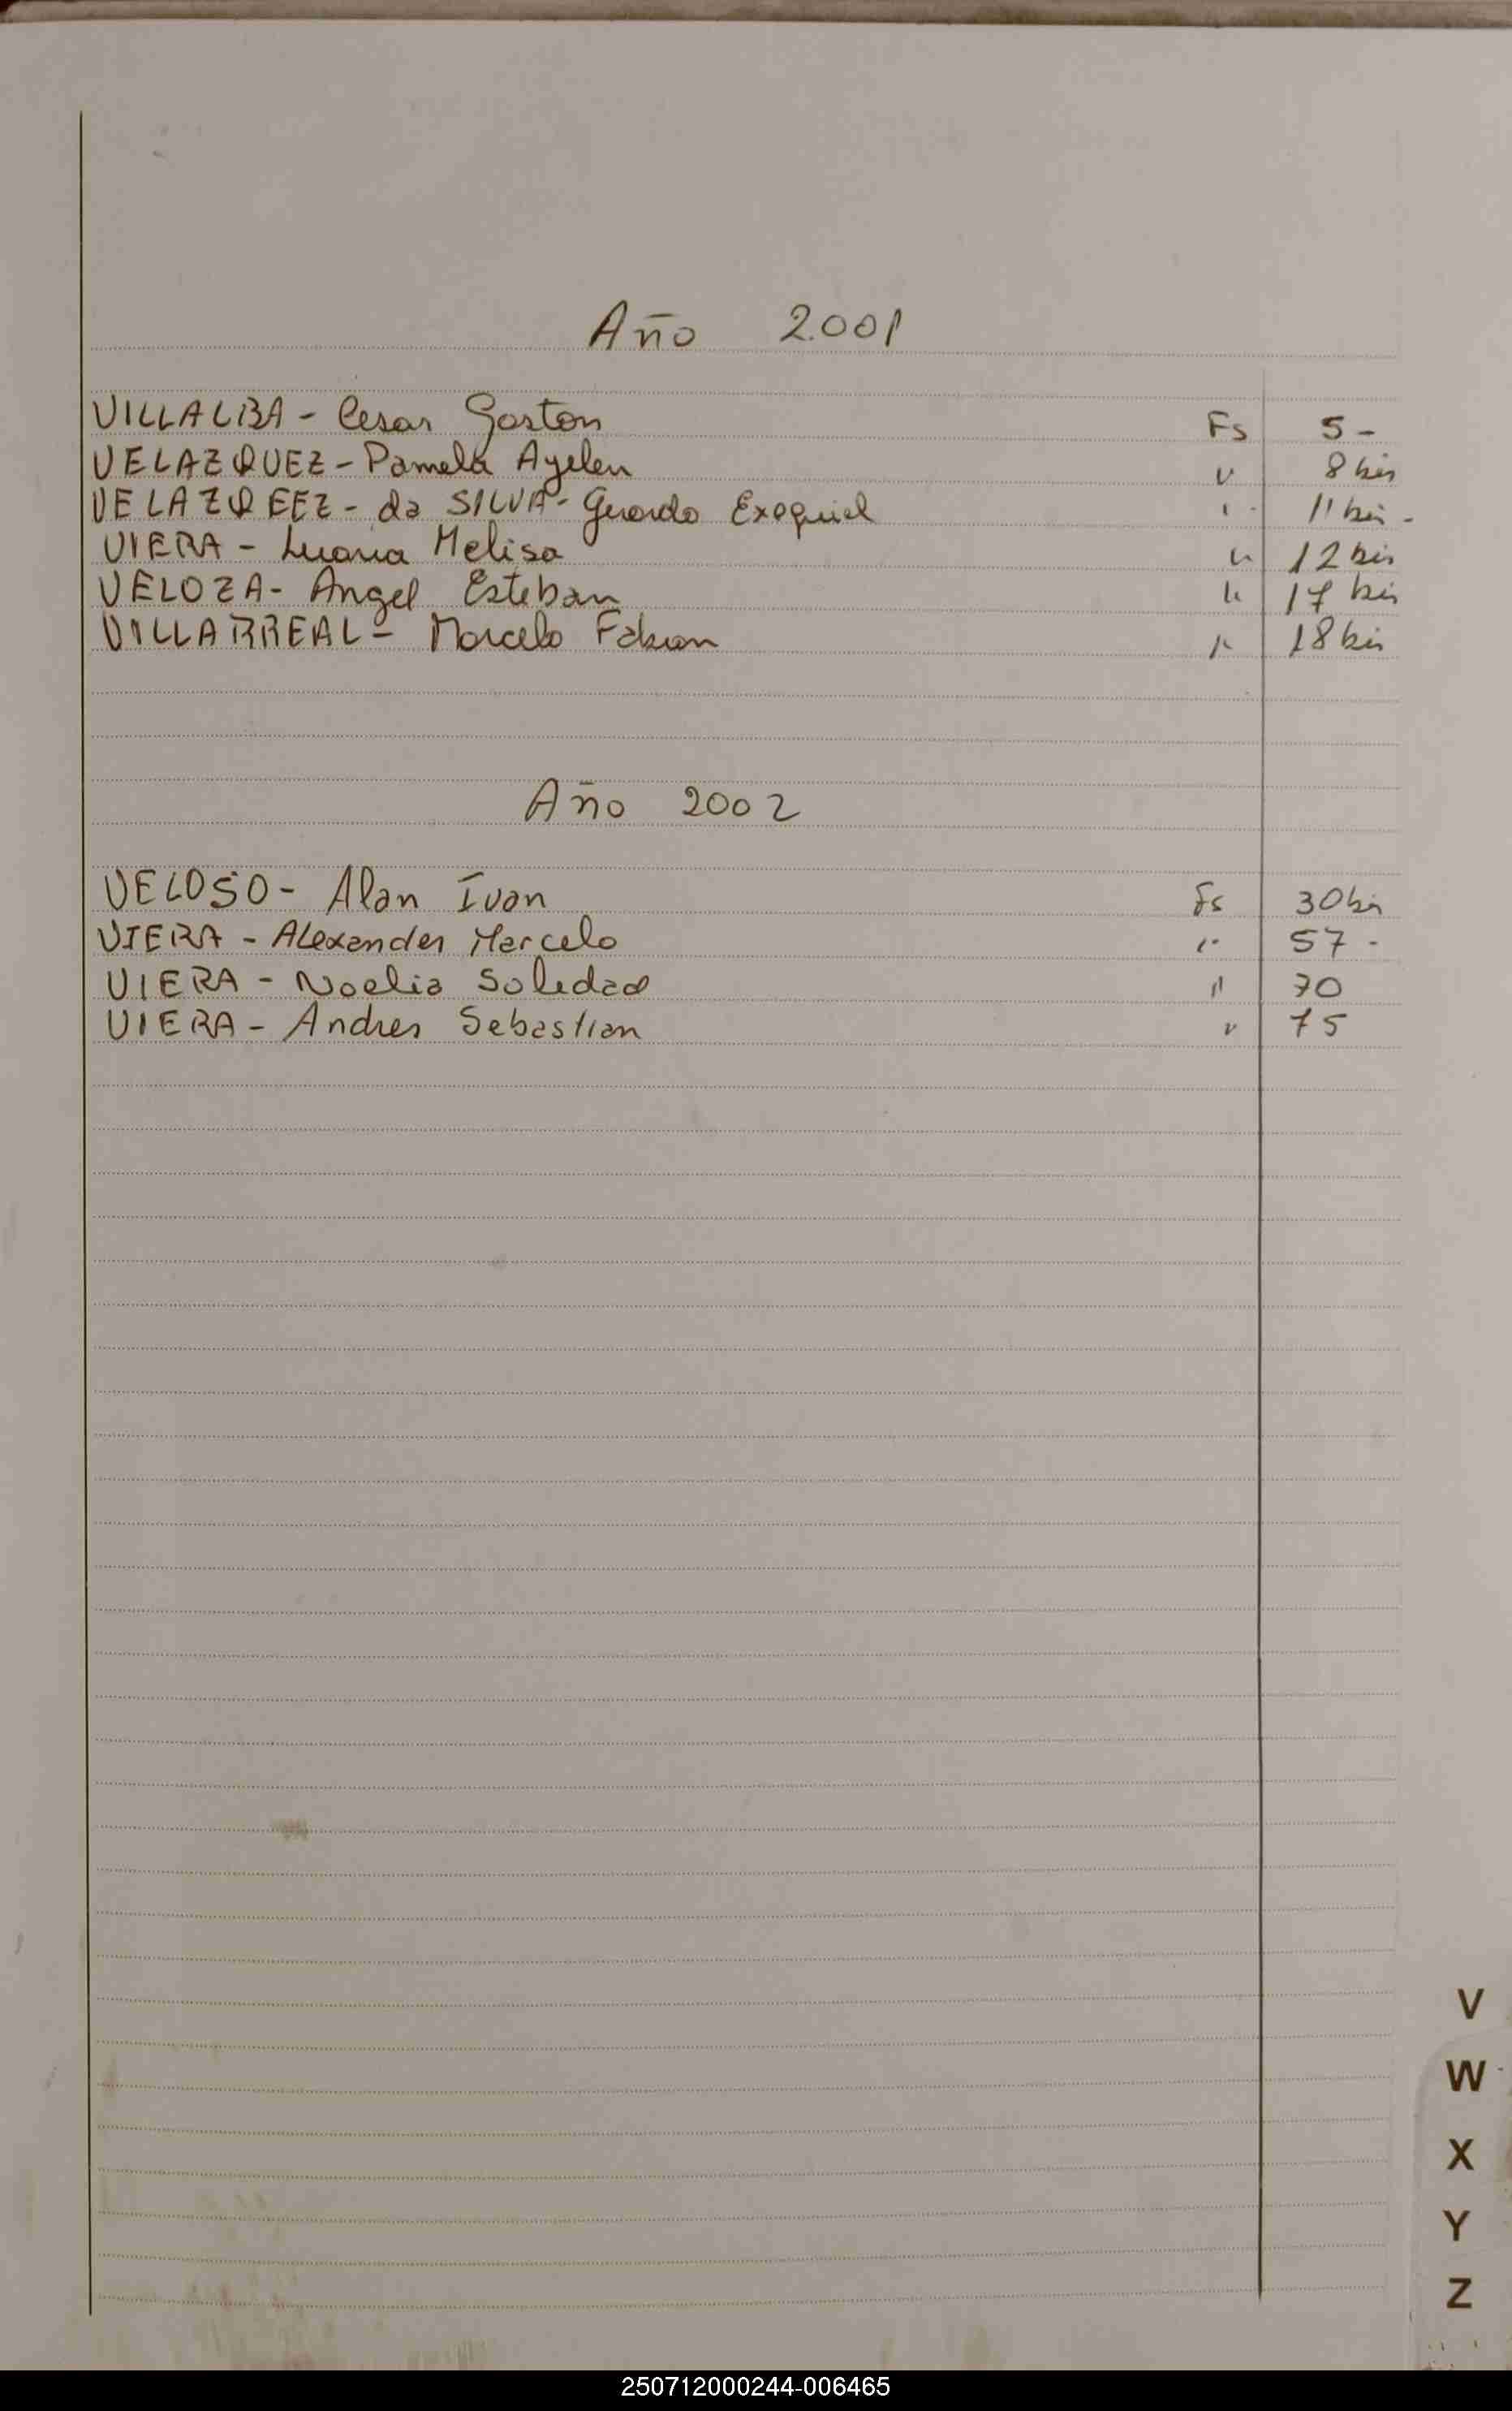 Año 2001
VILLALBA - Cesar Gaston Fs 5 -
VELAZQUEZ - Pamela Ayelen " 8 bis
VELAZQEEZ - da SILVA - Gerardo Exequiel " 11 bis -
VIERA - Luana Melisa " 12 bis
VELOZA - Angel Esteban " 17 bis
VILLARREAL - Marcelo Fabian " 18 bis
Año 2002
VELOSO - Alan Ivan Fs 30 bis
VIERA - Alexander Marcelo " 57 -
VIERA - Noelia Soledad " 70
VIERA - Andres Sebastian " 75
V
W
X
Y
Z
250712000244-006465